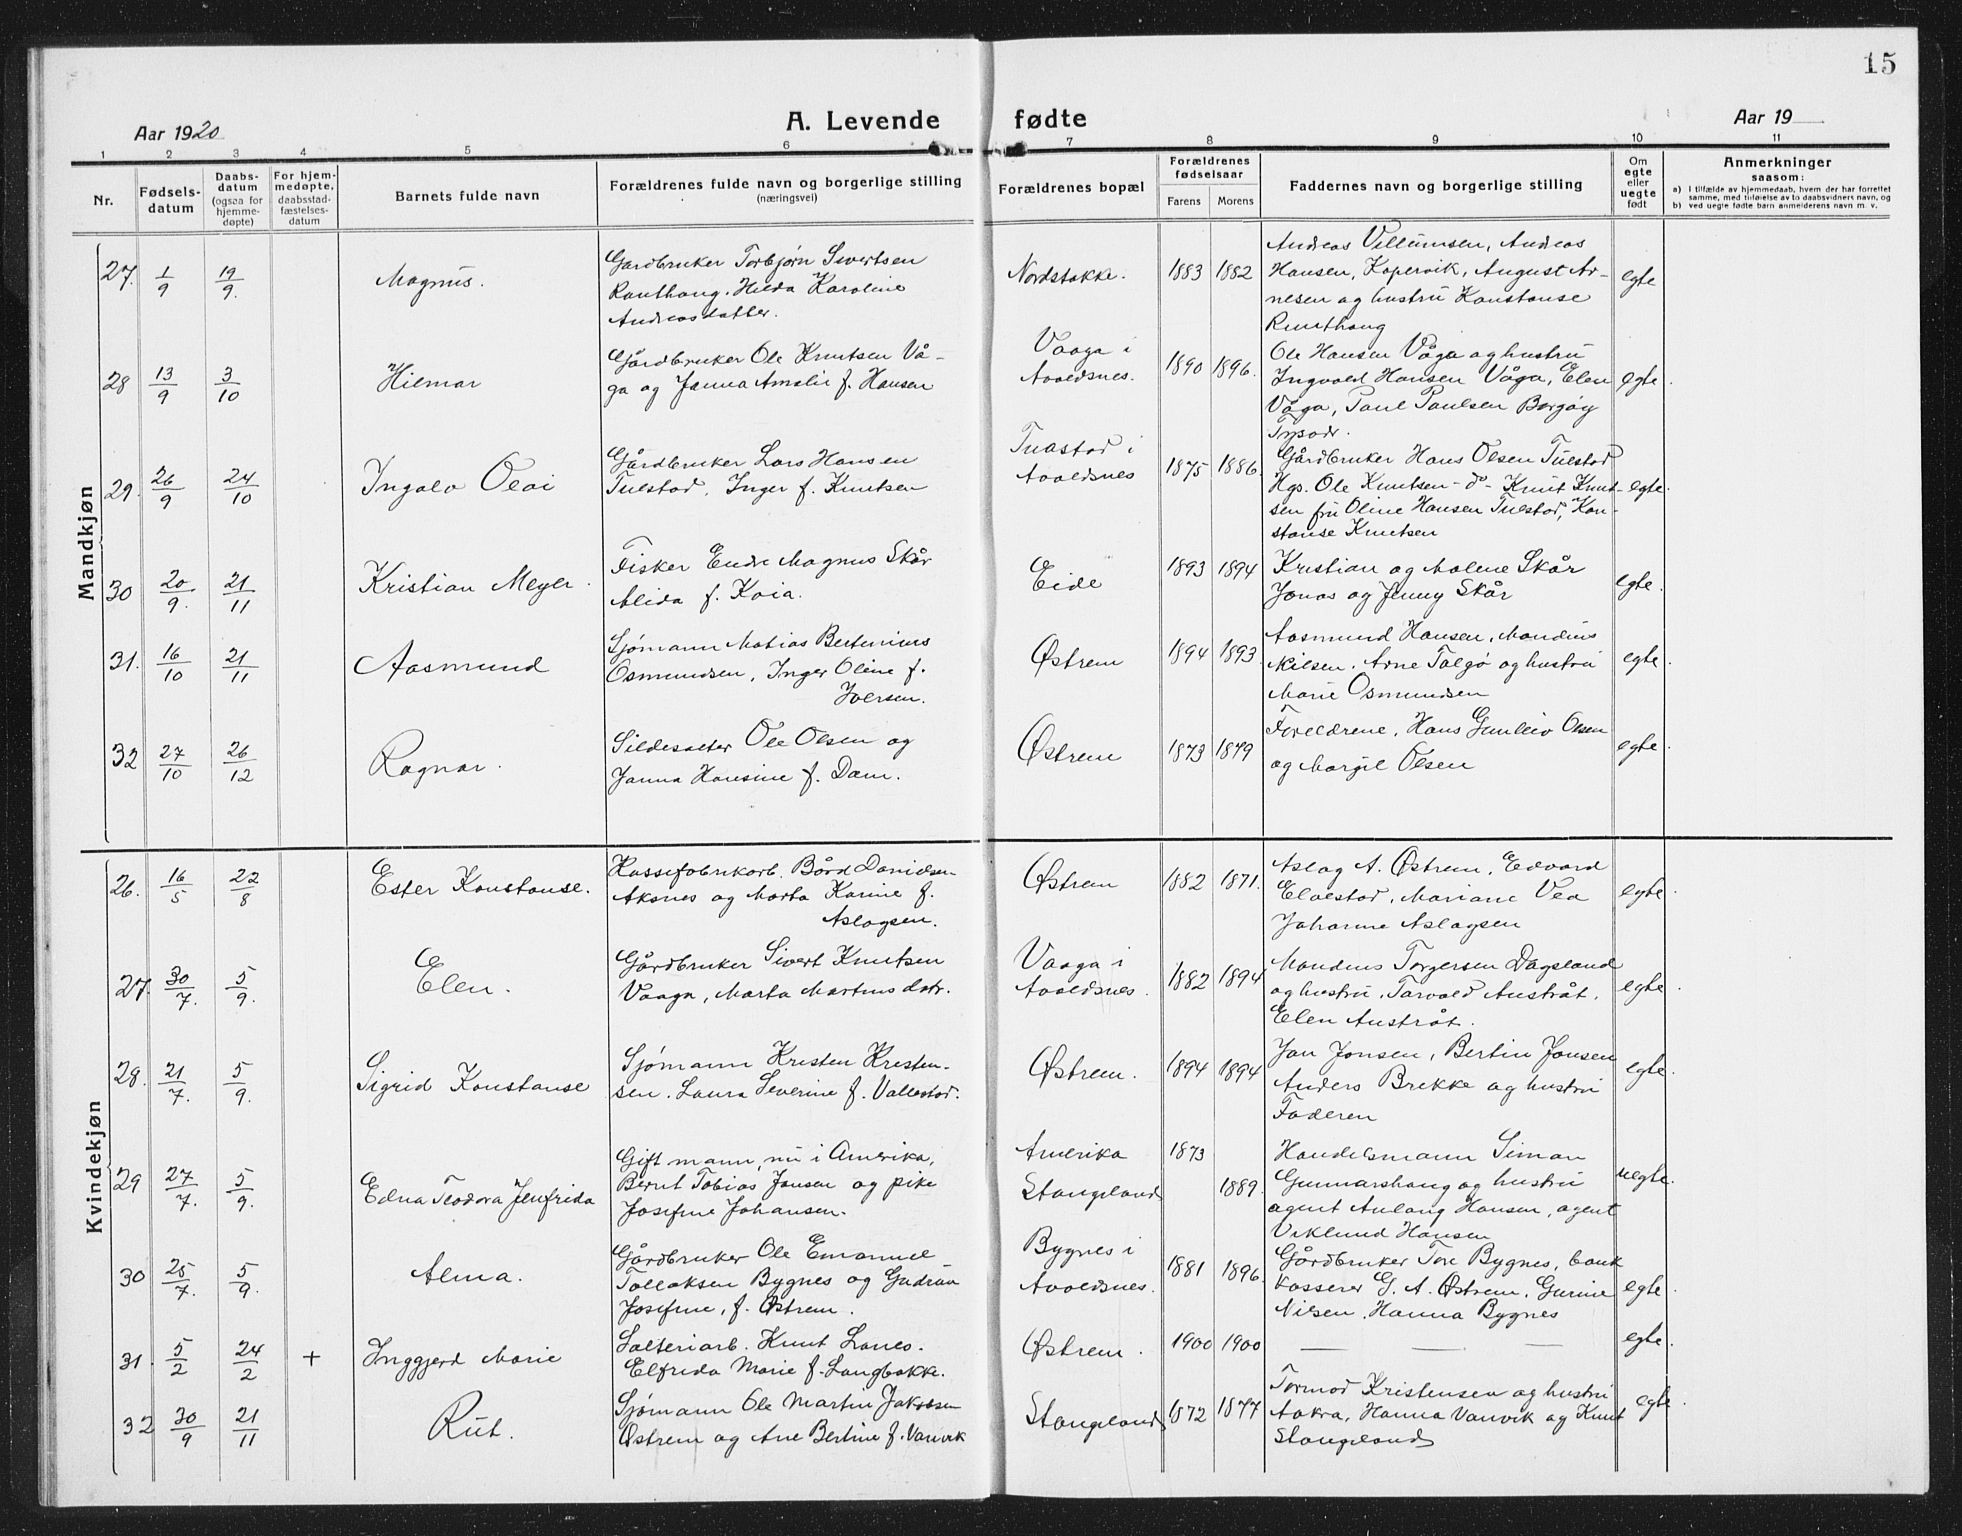 15
Aar 1920
A. Levende fødte
Aar 19
1 2 3 4 5 6 7 8 9 10 11
Nr.
Fødsels-
datum
Daabs-
datum
(ogsaa for
hjemme-
døpte)
For hjem-
medøpte,
daabsstad-
fæstelses-
datum
Barnets fulde navn
Forældrenes fulde navn og borgerlige stilling
(næringsvei)
Forældrenes bopæl
Forældrenes
fødselsaar
Farens Morens
Faddernes navn og borgerlige stilling
Om
egte
eller
uegte
født
Anmerkninger
saasom:
a) I tilfælde av hjemmedaab, hvem der har forrettet
samme, med tilføielse av to daabsvidners navn, og
b) ved uegte fødte barn anmelderens navn m. v.
Mandkjøn
27. 1/9 19/9. Magnus.
Gardbruker Torbjørn Sivertsen
Hilda Karoline
Andreasdatter.
Nordstokke. 1883 1882
Andreas Villumsen, Andreas
Hansen, Kopervik, August Ar-
nesen og hustru Konstanse
egte
28 13/9 3/10 Hilmar
Gårdbruker Ole Knutsen Vå-
ga og Janna Amalie f. Hansen
Vaaga i
Avaldsnes. 1890 1896.
Ole Hansen Våga og hustru
Ingvald Hansen Våga, Elen
Våga, Paul Paulsen Borgøy
egte.
29. 26/9 24/10 Ingolv Olai
Gårdbruker Lars Hansen
Tuestad, Inger f. Knutsen
Tuastad i
Avaldsnes 1875 1886.
Gårdbruker Hans Olsen Tuestad
Hgs. Ole Knutsen - do - Knut Knut-
sen fru Oline Hansen Tuestad, Kon-
stanse Knutsen
egte.
30 20/9. 21/11 Kristian Meyer.
Fisker Endre Magnus Skår
Alida f. Kaia.
Eide 1893 1894
Kristian og Malene Skår
Jonas og Jenny Skår
egte.
31. 16/10 21/11 Aasmund
Sjømann Matias Bertinius
Osmundsen, Inger Oline f.
Iversen.
Østrem 1894 1893.
Aasmund Hansen, Mandius
Nilsen. Arne Talgø og hustru
Marie Osmundsen
egte.
32 27/10 26/12 Ragnar.
Sildesalter Ole Olsen og
Janna Hansine f. Dam.
Østrem 1873 1879
Foreldrene, Hans Gunleiv Olsen
og Margit Olsen
egte.
Kvindekjøn
26. 16/5 22/8 Ester Konstanse.
Kassefabrikarb. Bård Danielsen
Aksnes og Marta Karine f.
Aslagsen.
Østrem 1882 1871.
Aslag A. Østrem, Edvard
Elvestad, Mariane Vea
Johanne Aslagsen
egte.
27. 30/7. 5/9. Elen.
Gårdbruker Sivert Knutsen
Vaaga, Marta Martinsdatr.
Vaaga i
Avaldsnes. 1882 1894
Mandius Torgersen Dagsland
og hustru, Torvald Austråt.
Elen Austråt.
egte.
28. 21/7. 5/9. Sigrid Konstanse
Sjømann Kristen Kristen-
sen. Laura Severine f. Vallestad.
Østrem. 1894 1894
Jan Jonsen, Bertin Jonsen
Anders Brekke og hustru
Faderen
egte.
29 27/7. 5/9. Edna Teodora Jenfrida
Gift mann, nu i Amerika,
Bernt Tobias Jonsen og pike
Josefine Johansen.
Amerika 1873
Stangeland 1889.
Handelsmann Simon
Gunnarshaug og hustru
agent Anlaug Hansen, agent
Viklund Hansen
uegte.
30 25/7. 5/9. Alma.
Gårdbruker Ole Emanuel
Tollaksen Bygnes og Gudrun
Josefine, f. Østrem.
Bygnes i
Avaldsnes. 1881 1896.
Gårdbruker Tore Bygnes, bank
kasserer G. A. Østrem, Gurine
Nilsen, Hanna Bygnes
egte.
31. 5/2 24/2 + Inggjerd Marie
Salteriarb. Knut Lanes.
Elfrida Marie f. Langbakke.
Østrem. 1900 1900 — — —
egte.
32 30/9 21/11 Rut.
Sjømann Ole Martin Jakobsen
Østrem og Ane Bertine f. Vanvik
Stangeland 1872 1877
Tormod Kristensen og hustru
Aakra, Hanna Vanvik og Knut
Stangeland
egte.